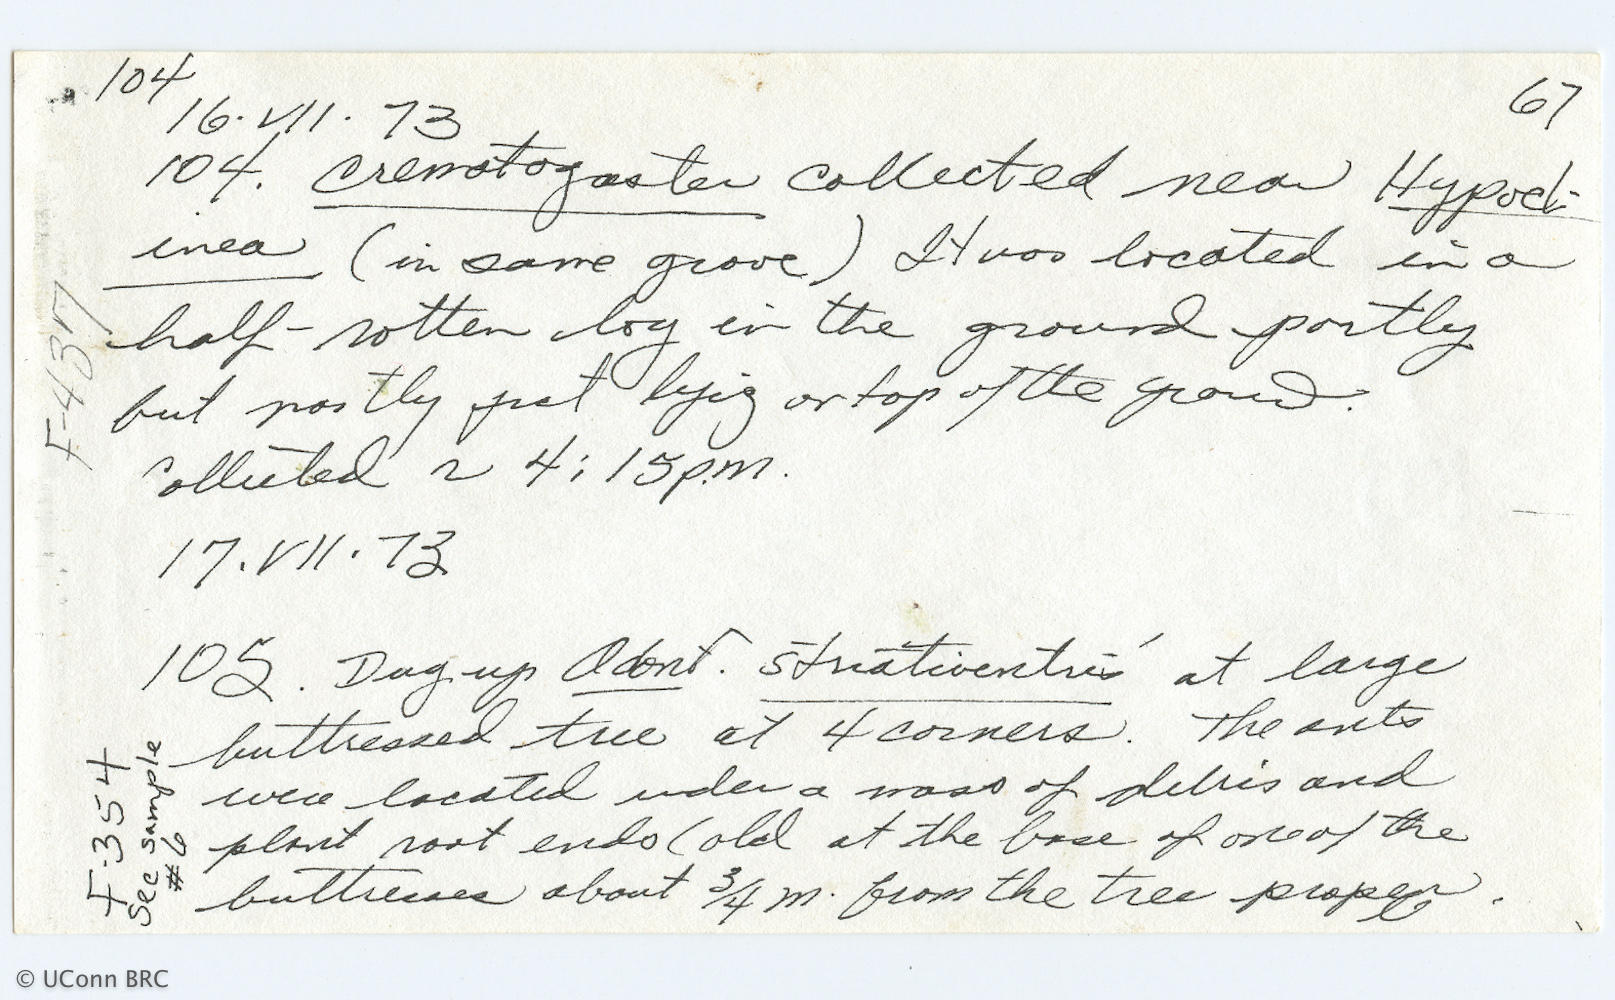 104
67
16.VII.73
104. Crematogaster collected near Hypocl-
inea (in same grove) It was located in a
half-rotten log in the ground partly
but mostly just lying on top of the ground.
Collected ~ 4:15 p.m.
F-437
17.VII.73
105. Dug up Odont. striativentris at large
buttressed tree at 4 corners. The ants
were located under a mass of debris and
plant root ends (old at the base of one of the
buttresses about 3/4 m. from the tree proper.
F-354
Sec sample
#6
© UConn BRC